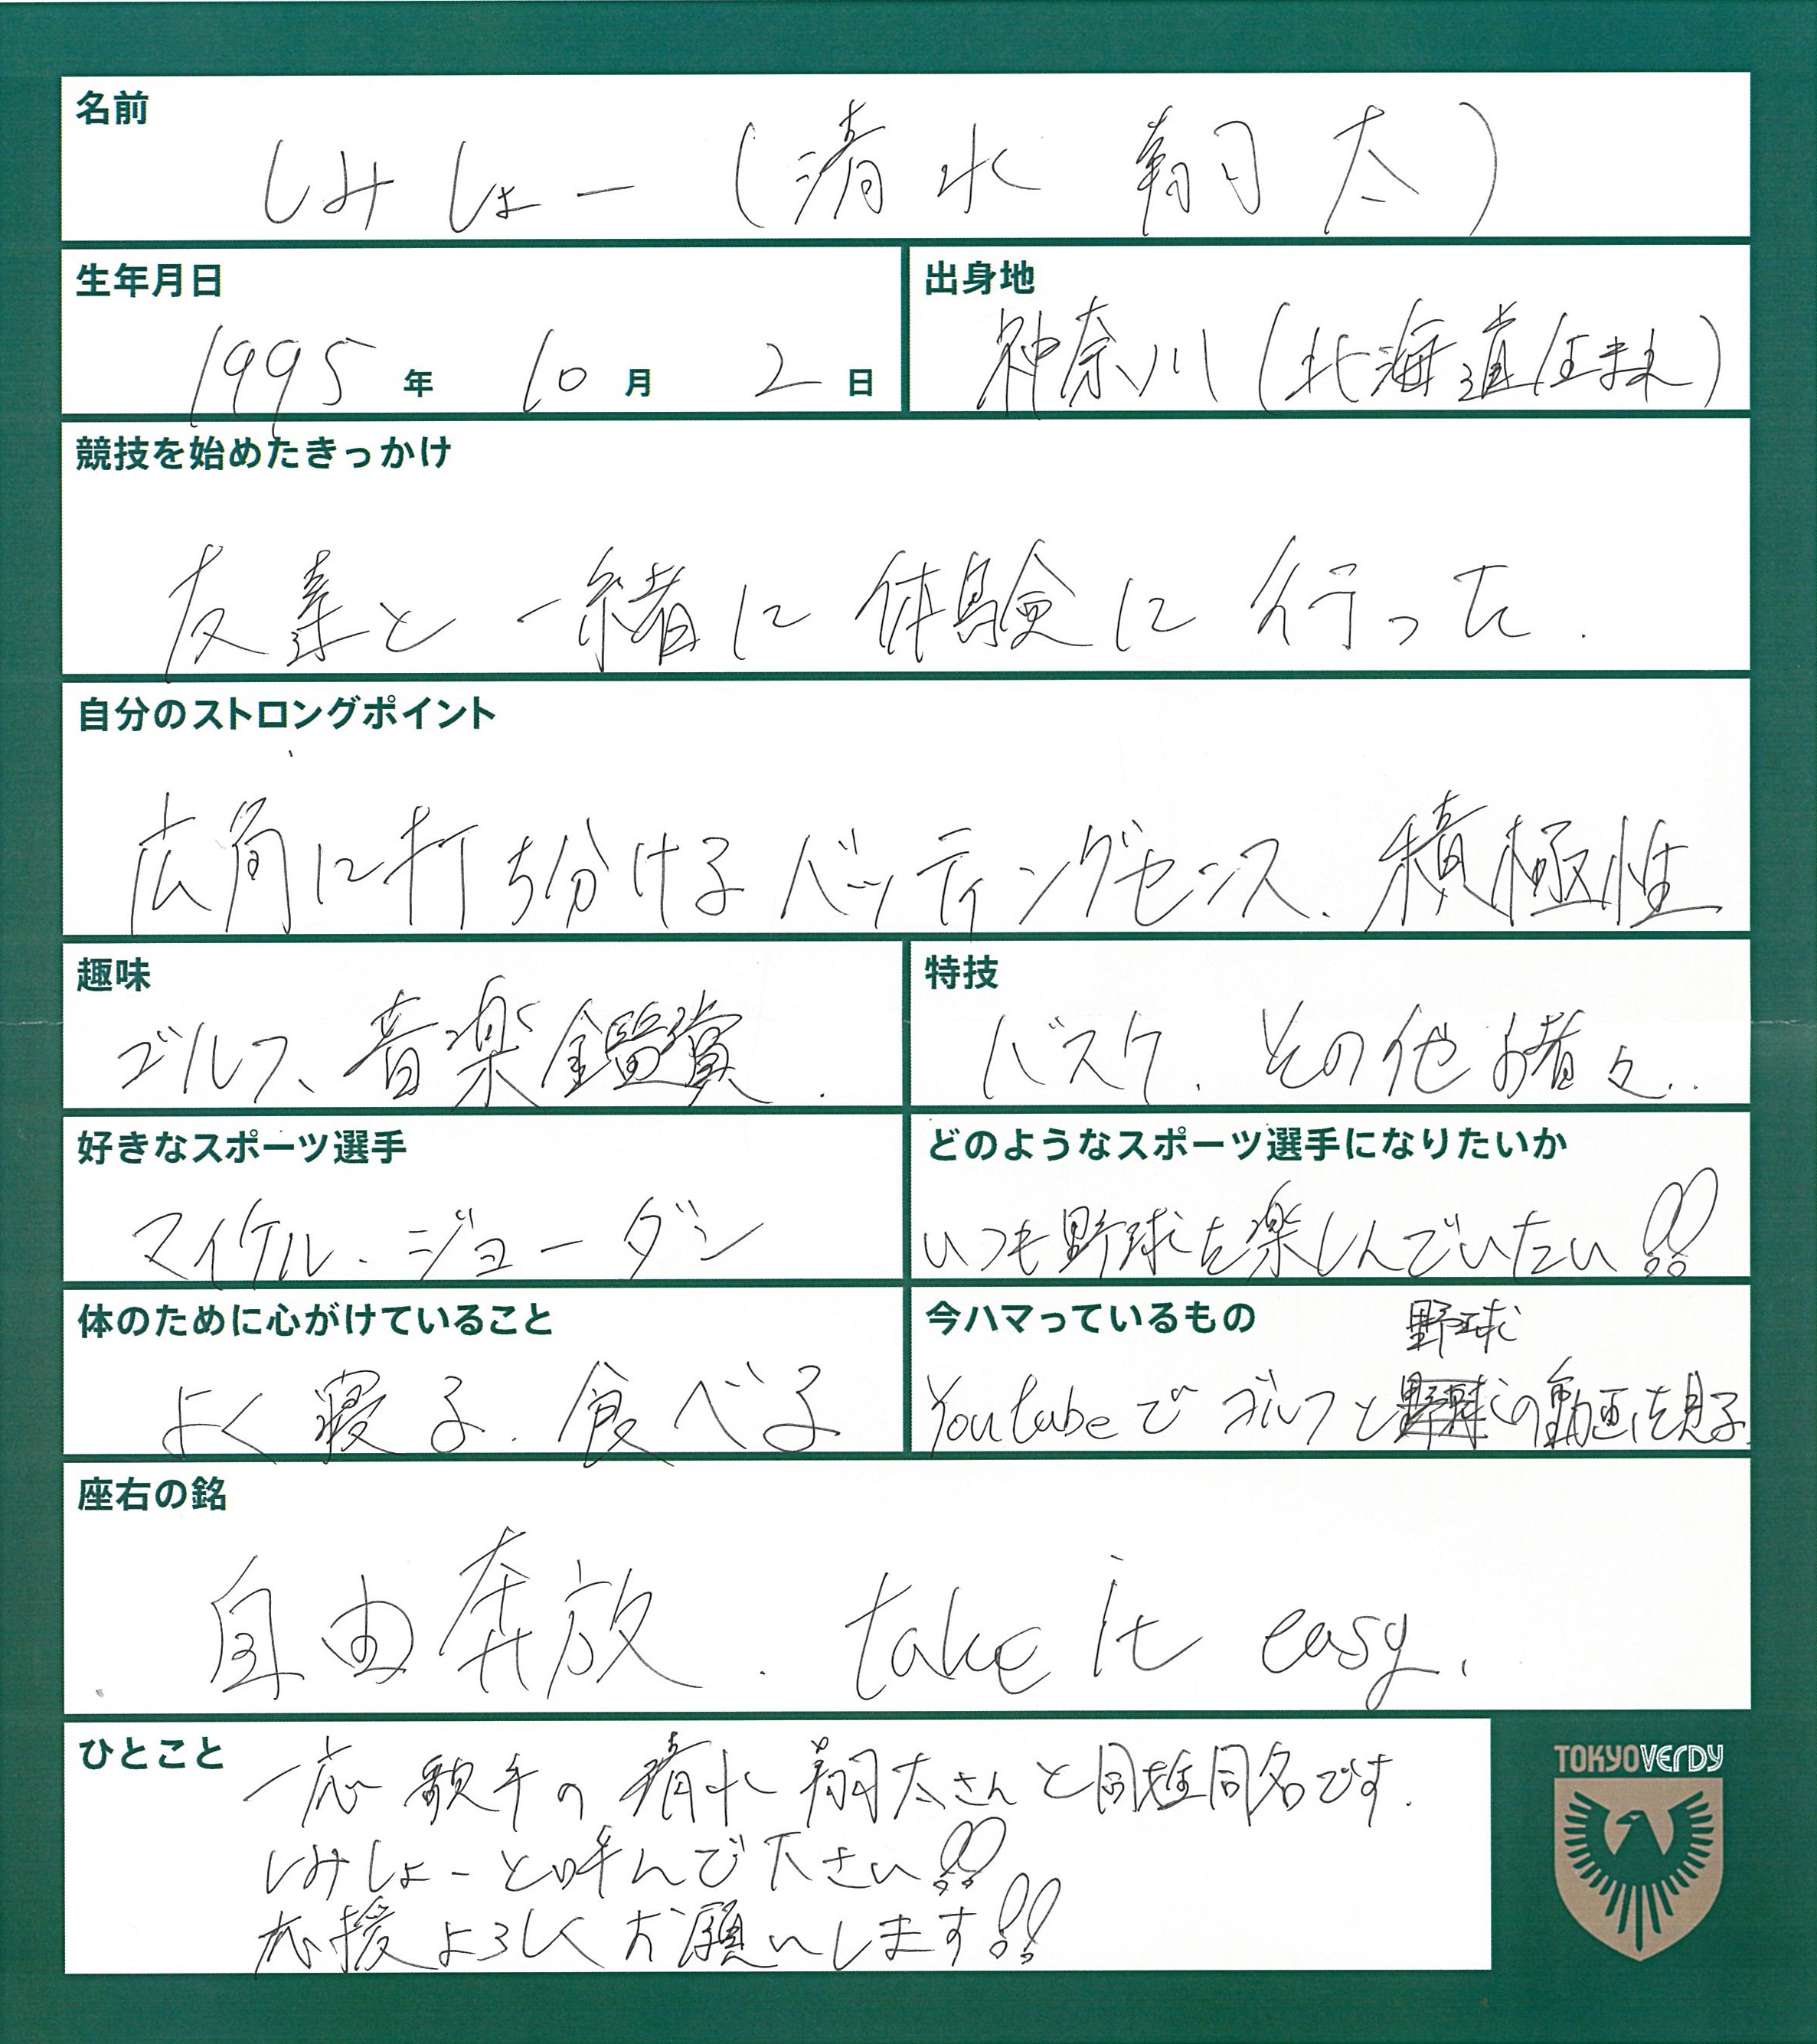 名前
しみしょー (清水 翔太)
生年月日
1995年 10月 2日
出身地
神奈川 (北海道生まれ)
競技を始めたきっかけ
友達と一緒に体験に行った.
自分のストロングポイント
広角に打ち分けるバッティングセンス、積極性
趣味
ゴルフ、音楽鑑賞.
特技
バスケ、その他諸々..
好きなスポーツ選手
マイケル・ジョーダン
どのようなスポーツ選手になりたいか
いつも野球を楽しんでいたい!!
体のために心がけていること
よく寝る、食べる
今ハマっているもの
野球
Youtubeでゴルフとの動画を見る.
座右の銘
自由奔放. take it easy.
ひとこと
一応歌手の清水翔太さんと同姓同名です.
しみしょーと呼んで下さい!!
応援よろしくお願いします!!
TOKYO VERDY